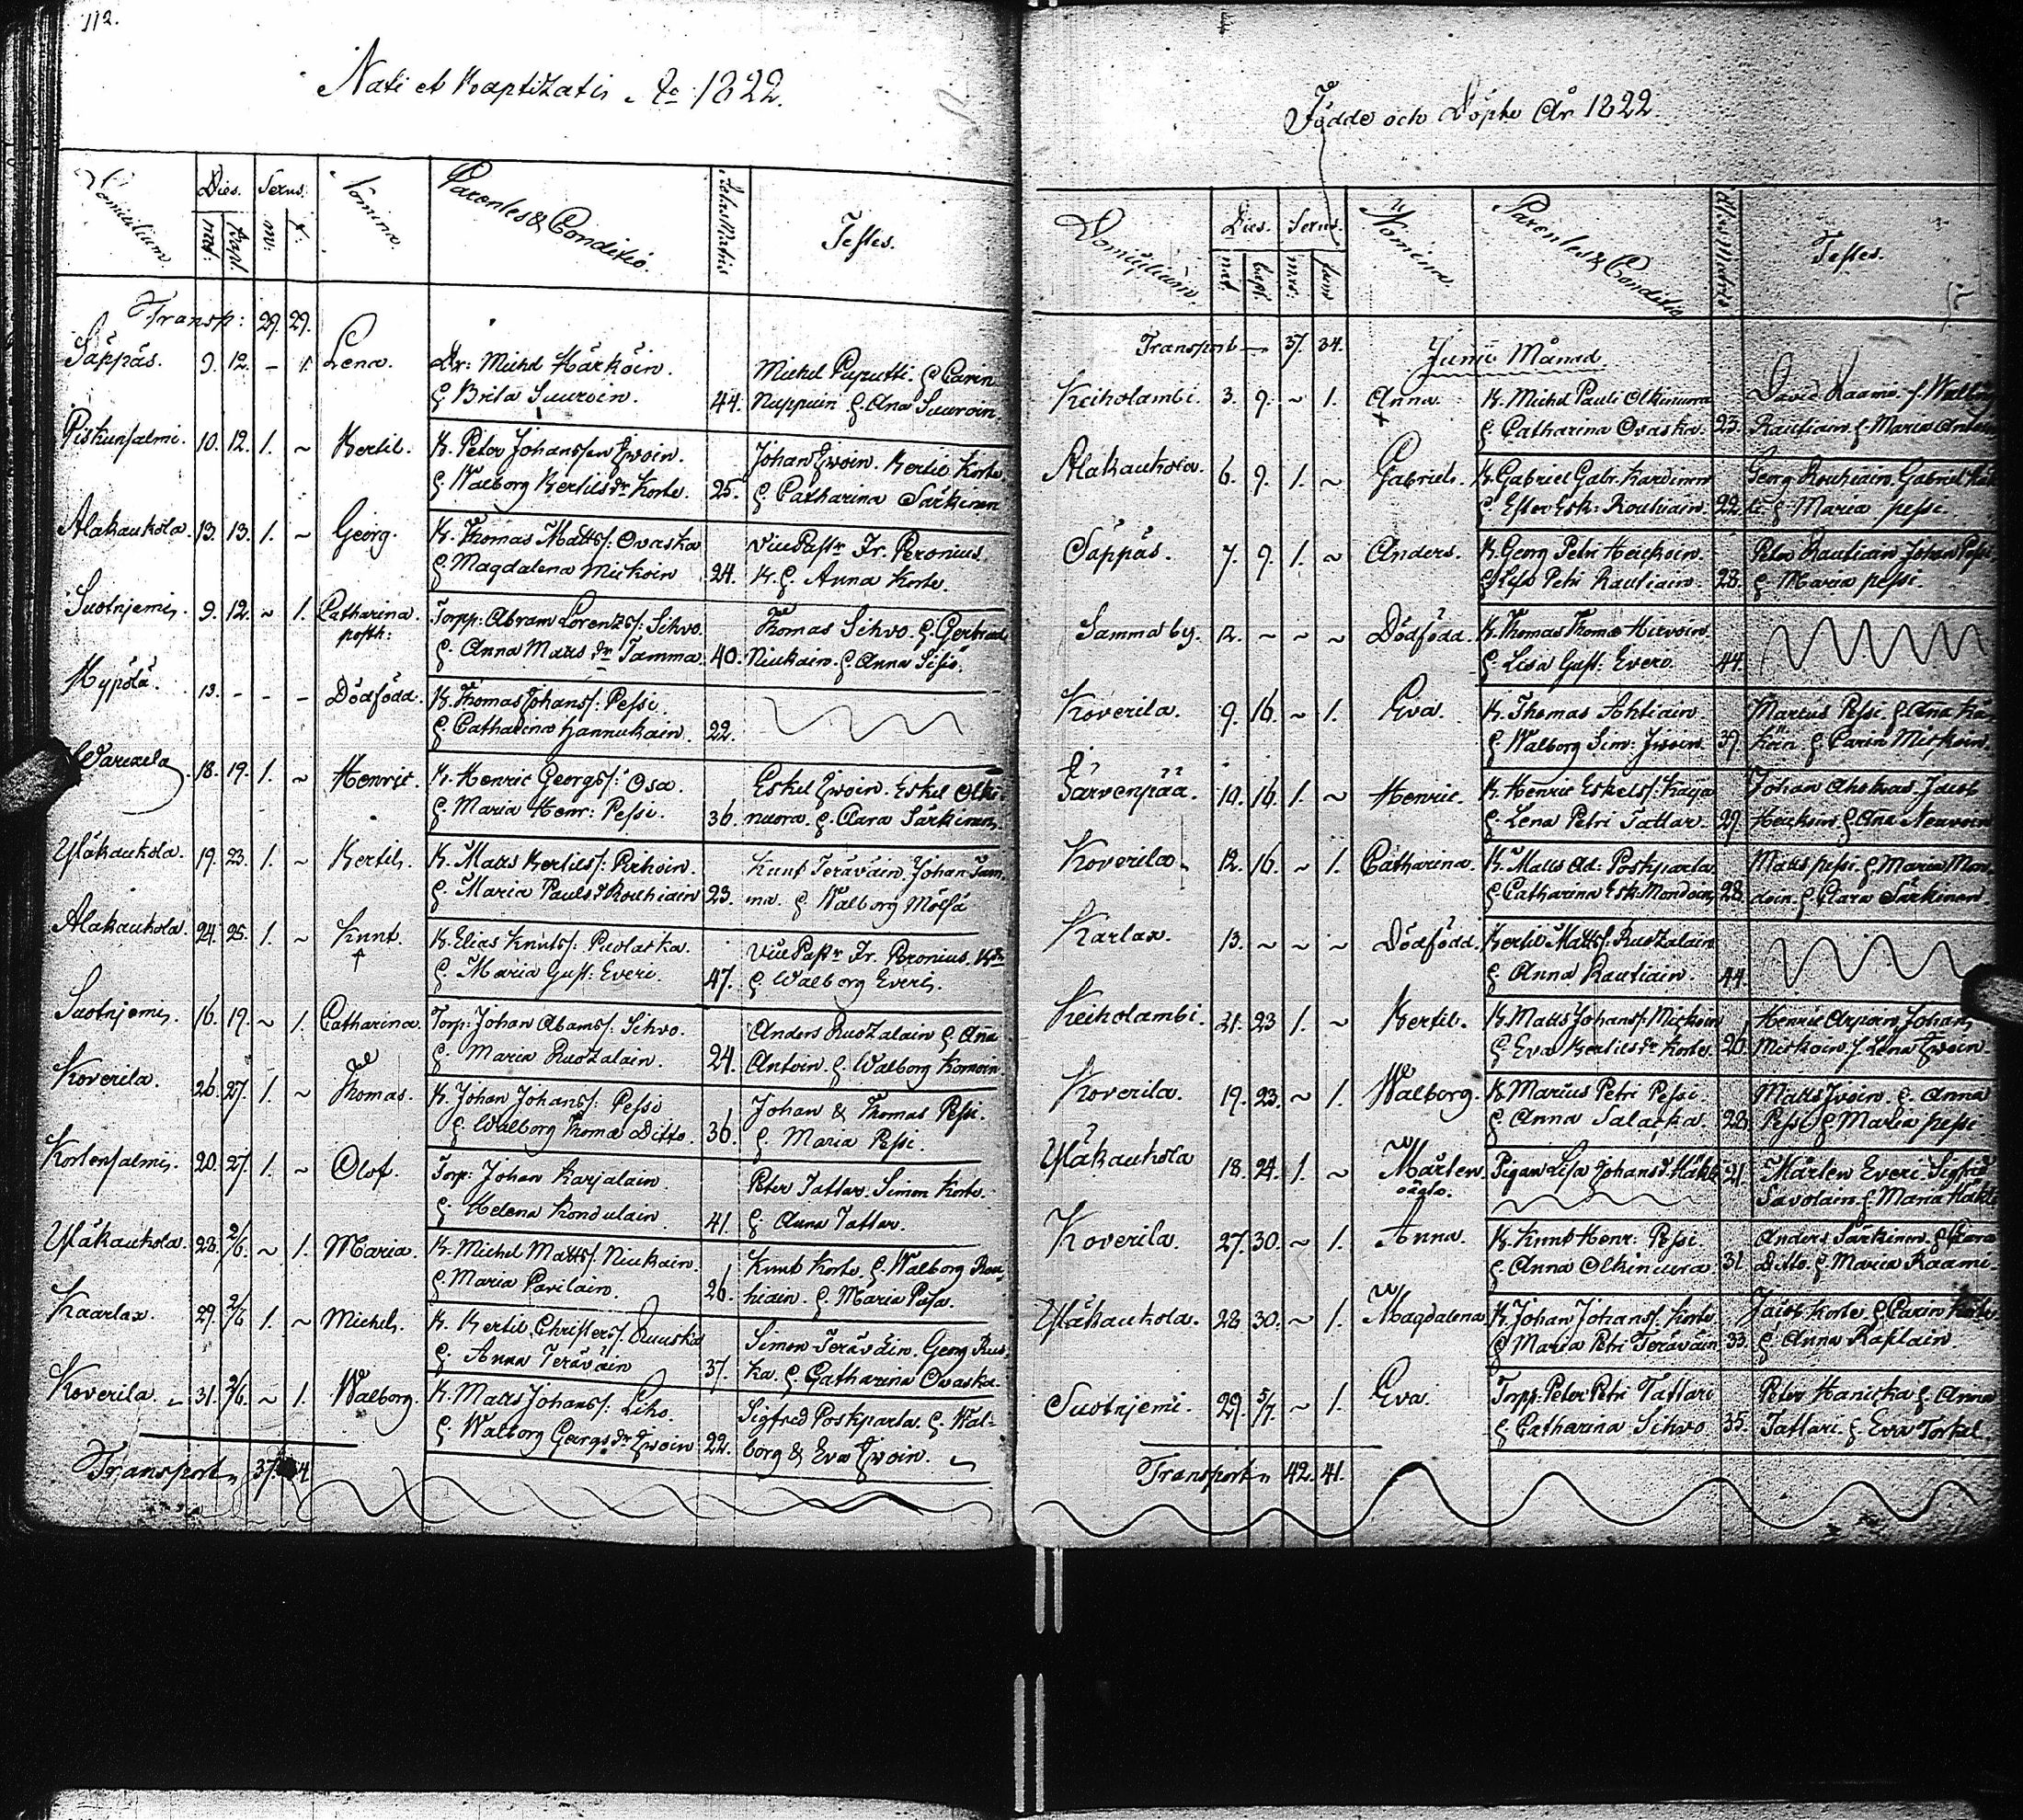 112.
Nati et Baptizatis Ao 1822.
Domicilium. Dies. Sexus. Nomina. Parentes & Conditio. Aetas Matris Testes.
nat: Bapt. m: f:
Transp: 29. 29.
Säppäs. 9. 12. - 1. Lena. Dr: Michel Härköin. Michel Puputti. H Carin
H Brita Suuroin. 44. Nuppuin H. Ana Suuroin.
Piskunsalmi. 10. 12. 1. ~ Bertil. B. Peter Johansson Ihvoin. Johan Ihvoin. Bertil Korte
H Walborg Bertils dr Korte. 25. H Catharina Särkinen
Alakaukola. 13. 13. 1. ~ Georg. B. Thomas Matts: Ovaska Vice Past. Fr. Peronius.
H. Magdalena Mickoin 24. H. Anna Korte.
Suotnjemi. 9. 12. ~ 1. Catharina. Torpp: Abram Lorentzs: Sihvo. Thomas Sihvo. H. Gertrud
posth: H. Anna Matts dr Tamma. 40. Niukain. H Anna
Hypölä. 13. - - - Dödfödd. B. Thomas Johans: Pessi.
H Catharina Hannukain. 22.
18. 19. 1. ~ Henric. B. Henric Georgs: Osa. Eskel Ihvoin. Eskel Olki-
H. Maria Henr: Pessi. 36. nuora. H. Clara Särkinen.
Yläkaukola. 19. 23. 1. ~ Bertil. B. Matts Bertils: Pihoin. Knut Teräväin. Johan Tam-
H. Maria Pauls dr Rouhiain 23. ma. H Walborg Mölsä
Alakaukola. 24. 25. 1. ~ Knut. B. Elias Knuts: Puolaska. Vice Past. Fr. Peronius.
H. Maria Gust: Everi. 47. H Walborg Everi.
Suotnjemi. 16. 19. ~ 1. Catharina. Torp: Johan Abams: Sihvo. Anders Ruotzalain H Ana
H Maria Ruotzalain. 24. Antoin. H Walborg Komoin
Koverila. 26. 27. 1. ~ Thomas. B. Johan Johans: Pessi Johan & Thomas Pessi.
H. Walborg Thomæ Ditto. 36. H. Maria Pessi.
Kortensalmi. 20. 27. 1. ~ Olof. Torp: Johan Karjalain. Peter Tattar. Simon Korte.
H. Helena Kondulain. 41. H. Anna Tattar.
Yläkaukola. 28. 2/6. ~ 1. Maria. B. Michel Matts: Niukain. Knut Korte. H. Walborg Rou-
H. Maria Pavilain. 26. hiain. H Maria
Kaarlax. 29. 2/6 1. ~ Michel. B. Bertil Christers: Ruuska Simon Teräväin. Georg Rus-
H. Anna Teräväin 37. ka. H Catharina Ovaska.
Koverila. 31. 2/6. ~ 1. Walborg. B. Matts Johans: Liho. Sigfred Poskparta. H. Wal-
H. Walborg Georgs dr Ihvoin 22. borg & Eva Ihvoin.
Transport 37. 34
Födde och Döpte År 1822.
Domicilium. Dies. Sexus. Nomina. Parentes & Conditio Aetas Matris Testes.
nat. bapt. mas: fam
Transport 37. 34. Junii Månad
Keiholambi. 3. 9. ~ 1. Anna. B. Michel Pauli Olkinuora David Raami.
H Catharina Ovaska. 23. Rautiain H Maria
Alakaukola. 6. 9. 1. ~ Gabriel. B. Gabriel Gabr. Kardinen Georg Rouhiain. Gabriel
H. Ester Esk: Rouhiain. 22. H Maria pessi.
Säppäs. 7. 9. 1. ~ Anders. B. Georg Petri Heickoin. Peter Rautiain Johan Pessi
H Lisa Petri Rautiain. 28. H Maria pessi.
Samma by. 12. ~ ~ ~ Dödfödd. B. Thomas Thomæ Hirvoin.
H. Lisa Gust: Evero. 44.
Koverila. 9. 16. ~ 1. Eva. B. Thomas Ahtiain. Marcus Pessi. H. Ana
H Walborg Sim: Ihvoin 39. H Carin Mickoin.
Järvenpää. 10. 16. 1. ~ Henric. B. Henric Eskels: Kaija Johan Ahokas. Jacob
H. Lena Petri Tattar. 29. Heickoin H Ana Neuvoin
Koverila. 12. 16. ~ 1. Catharina. B. Matts Ad: Poskparta Matts pessi. H Maria Mon-
H Catharina Esk: Mondoin. 28. doin. H Clara Särkinen
Karlax. 13. ~ ~ ~ Dödfödd. Bertil Matts: Ruotzalain.
H Anna Rautiain. 44.
Keiholambi. 21. 23 1. ~ Bertil. B. Matts Johans: Mickoin Henric Arpoin. Johan
H. Eva Bertils dr Korte 26. Mickoin. H Lena Ihvoin.
Koverila. 19. 23. ~ 1. Walborg. B. Marcus Petri Pessi. Matts Ihvoin. H. Anna
H. Anna Salacka. 28. Pessi H Maria pessi
Yläkaukola 18. 24. 1. ~ Mårten. Pigan Lisa Johans d. Häkli 21. Mårten Everi. Sigfrid
oägta. Savolain. H Maria Häkli
Koverila. 27. 30. ~ 1. Anna. B. Knut Henr: Pessi. Anders Särkinen. H Clara
H. Anna Olkinuora 31. Ditto. H. Maria Raami.
Yläkaukola. 28. 30. ~ 1. Magdalena B. Johan Johans: Korte Jacob Korte H Carin Korte
H Maria Petri Teräväin 33. H. Anna Kaplain.
Suotnjemi. 29. 5/7. ~ 1. Eva. Torpp: Peter Petri Tattari Peter Hanicka H Anna
H Catharina Sihvo 35. Tattari. H Eva Torkel.
Transport 42. 41.